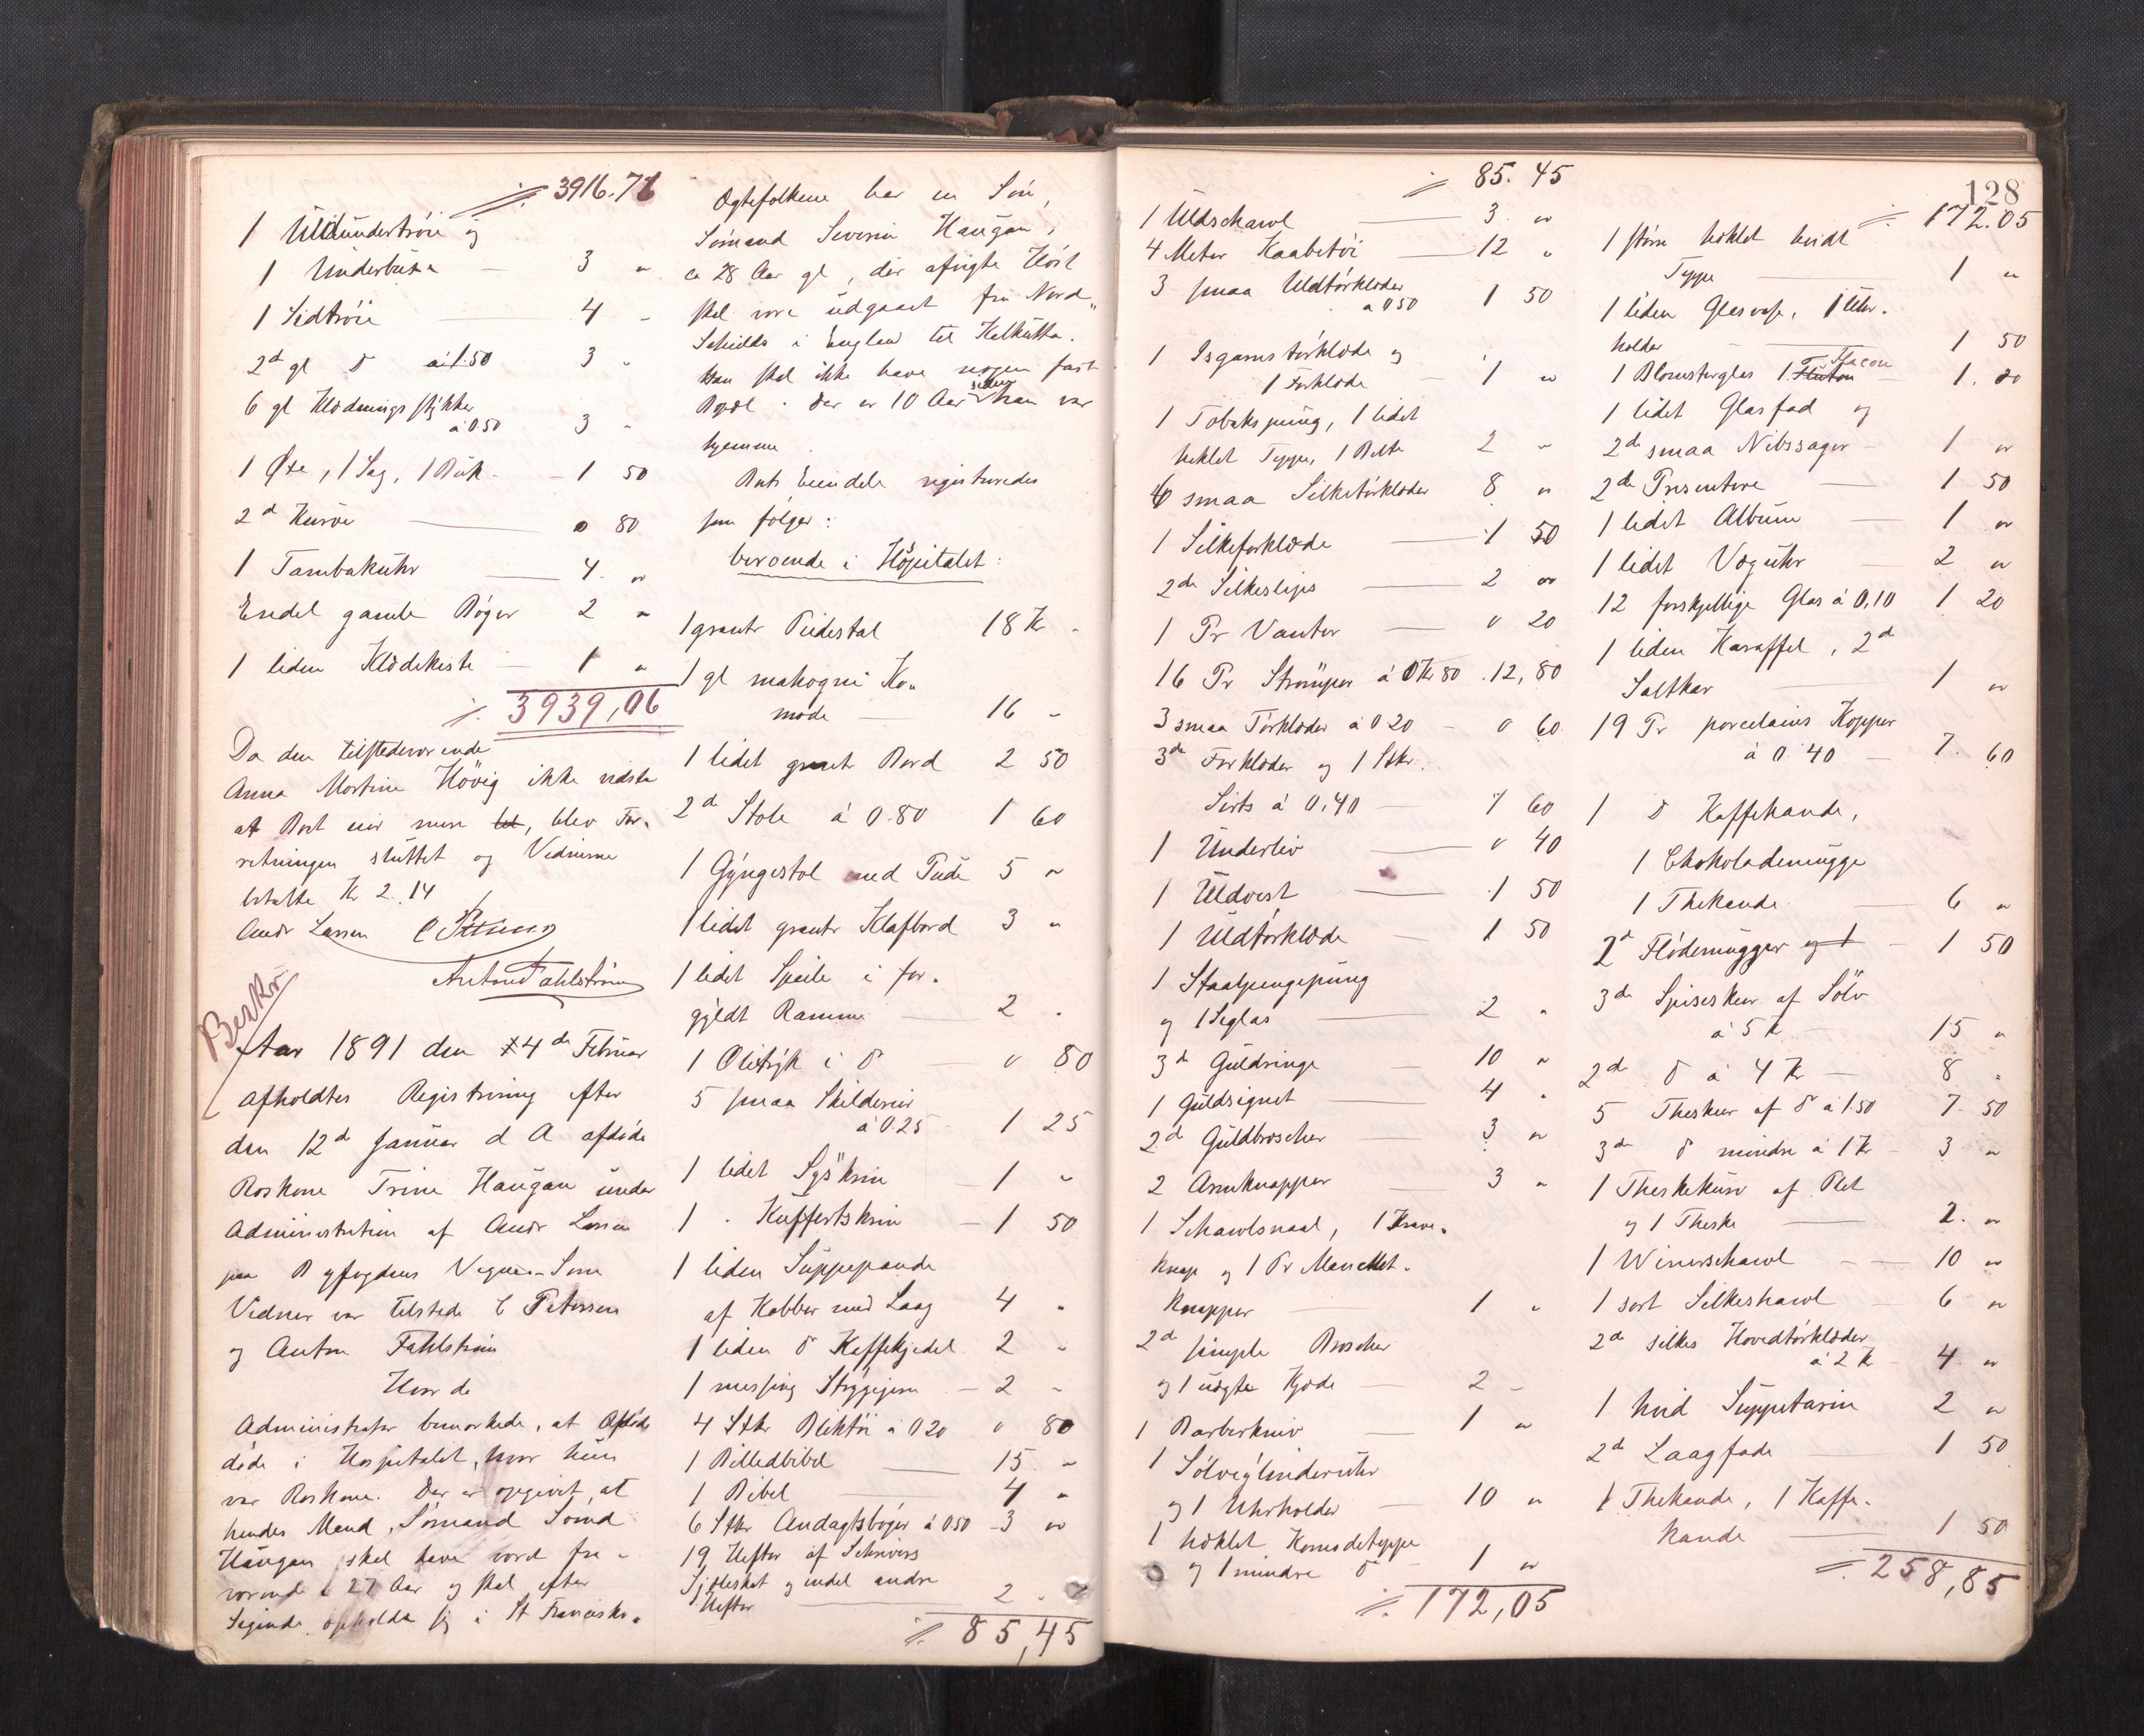 3916.76
1 Uldundertröie og
1 Underbuxe - 3 "
1 Sidtröie 4 -
2d gl do a 1.50 3 "
6 gl Klædningsstykker
à 0.50 3 "
1 Øxe, 1 Sag, 1 - 1 50
2d Kurve 0 80
1 Tambakuhr 4 "
Endel gamle Bøger 2 "
1 liden Klædekiste 1 "
3939,06
Da den tilstedeværende
Anna Martine Hövig ikke vidste
at Boet eier mere, blev For-
retningen sluttet og Vidnerne
betalte Kr 2.14
Andr Larsen
Anton Fahlström
Aar 1891 den 4de Februar
afholdtes Registrering efter
den 12d Januar d A afdøde
Roskone Trine Haugan under
Administration af Andr Larsen
paa Byfogdens Vegne - Som
Vidner var tilstede C Petersen
og Anton Fahlström
Hvor da
Administrator bemærkede, at Afdøde
døde i Hospitalet, hvor hun
var Roskone. Der er opgivet, at
hendes Mand, Sømand Svend
Haugan skal have været fra-
værende i 27 Aar og skal efter
Sigende opholde sig i St Francisko.
Ægtefolkene har en Søn,
Sømand Severin Haugan,
ca 28 Aar gl, der afvigte Høst
skal være udgaaet fra Nord-
Schields i England til Kalkutta.
Han skal ikke have nogen fast
Bopæl. Der er 10 Aar siden han var
hjemme.
Boets Eiendele registreredes
som følger:
beroende i Hospitalet:
1 grant Piedestal 18 Kr -
1 gl mahogni Ko-
mode 16 -
1 lidet grant Bord 2 50
2d Stole à 0.80 1 60
1 Gyngestol med Pude 5 "
1 lidet grant Klafbord 3 "
1 lidet Speile i for-
gyldt Ramme 2 -
1 Olietryk i do 0 80
5 smaa Skilderier
à 0.25 1 25
1 lidet Syskrin 1 "
1 - Kuffertskrin 1 50
1 liden Suppepande
af Kobber med Laag 4 "
1 liden do Kaffekjedel 2 -
1 messing Strygejern - 2 -
4 Stkr Bliktöi à 0 20 0 80
1 Billedbibel 15 "
1 Bibel 4 "
6 Stkr Andagtsbøger à 0 50 - 3 "
19 Hefter af Schrivers
Sjæleskat og endel andre
Hefter 2 "
85,45
128
85.45
1 Uldschawl 3 "
4 Meter Kaabetöi 12 "
3 smaa Uldtörklæder
a 0 50 1 50
1 Isgarnstörklæde og
1 Forklæde 1 "
1 Tobakspung, 1 lidet
heklet Teppe, 1 Belte 2 "
6 smaa Silketörklæder 8 "
1 Silkeforklæde 1 50
2de Silkeslips 2 "
1 Pr Vanter 0 20
16 Pr Strømper à 0 Kr 80 12,80
3 smaa Törklæder à 0 20 - 0 60
3de Forklæder og 1 Stkr.
Sirts à 0,40 1 60
1 Underliv 0 40
1 Uldvest 1 50
1 Uldtörklæde 1 50
1 Staalpengepung
og 1 Seglas 2 "
3de Guldringe 10 "
1 Guldsignet 4 "
2d Guldbroscher 3 "
2 Armknapper 3 "
1 Schawlsnaal, 1 Krave-
knap og 1 Pr Manchet-
knapper 1 "
2d simple Broscher
og 1 uægte Kjæde 2 -
1 Barberkniv 1 "
1 Sölvcylinderuhr
og 1 Uhrholder 10 "
1 hæklet Komodeteppe
og 1 mindre do 1 "
172,05
172.05
1 större hæklet hvidt
Teppe 1 "
1 liden Glasvase, 1 Uhr-
holder 1 50
1 Blomsterglas 1 Flacon 1. 20
1 lidet Glasfad og
2de smaa Nibssager 1 "
2de Presentere 1 50
1 lidet Album 1 "
1 lidet Væguhr 2 "
12 forskjellige Glas à 0,10 1 20
1 liden Karaffel, 2d
Saltkar 1 "
19 Pr porcelains Kopper
à 0.40 7. 60
1 do Kaffekande,
1 Chokolademugge
1 Thekande 6 "
2d Flödemugger og 1 1 50
3de Spiseskeer af Sölv
à 5 Kr 15 "
2de do à 4 Kr 8 "
5 Theskeer af do à 1.50 7. 50
3de do mindre à 1 Kr 3 "
1 Theskekurv af Plet
og 1 Theske 2. "
1 Winerschawl 10 "
1 sort Silkeshawl 6 "
2de silkes Hovedtörklæder
à 2 Kr 4 "
1 hvid Suppeterin 2 "
2d Laagfade 1 50
1 Thekande, 1 Kaffe-
kande 1 50
258,85